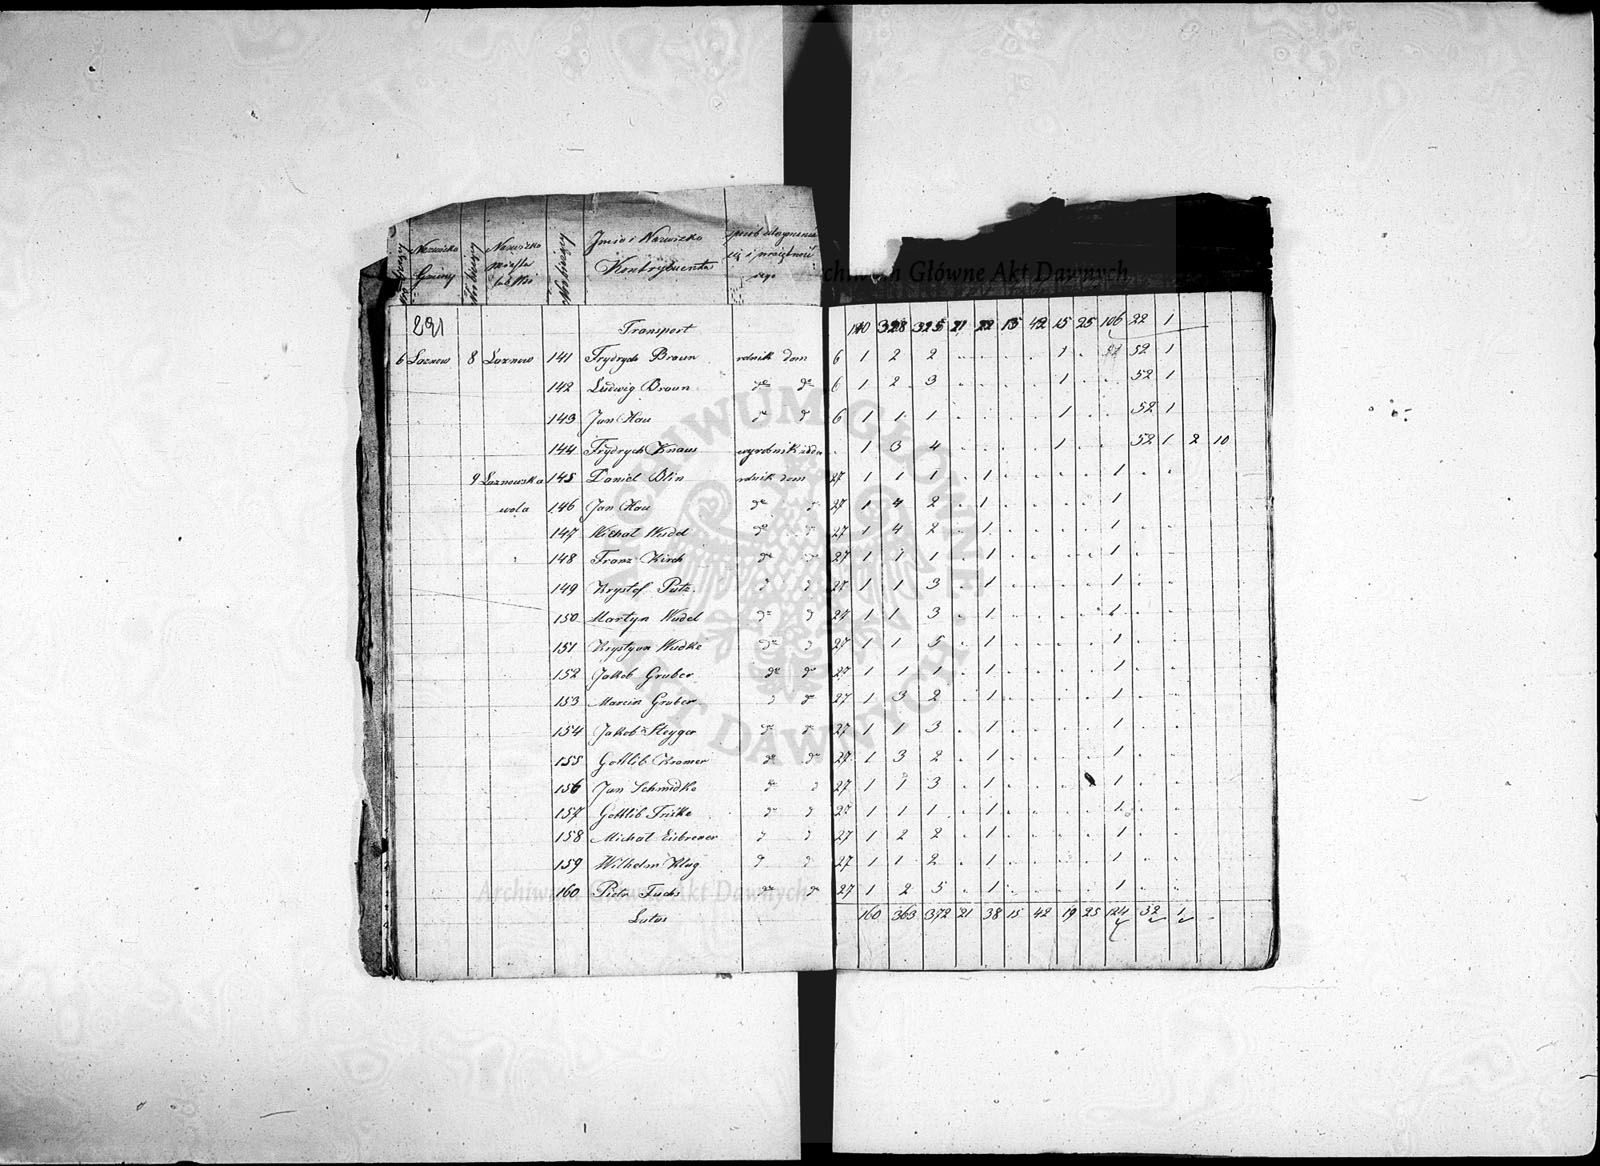 Nazwisko Gminy
Nazwisko miasta lub Wsi
Imie i Nazwisko Kontrybuenta
291 Transport 140 328 325 21 22 15 42 15 25 106 22 1
6 Laznow 8 Laznow 141 Frydrych Braun rolnik dom 6 1 2 2 . . . . 1 . 52 1
142 Ludwig Braun do do 6 1 2 3 . . . . 1 . . 52 1
143 Jan Hau d d 6 1 1 1 . . . . 1 . . 52 1
144 Frydrych Knaus wyrobnik . 1 3 4 . . . . 1 . . 52 1 2 10
9 Laznowska 145 Daniel Blin rolnik dom 27 1 1 1 . 1 . . . . 1 .
wola 146 Jan Hau do d 27 1 4 2 . 1 . . . . 1
147 Michal Wudel do d 27 1 4 2 . 1 . . . . 1
148 Franz Kirch do do 27 1 1 1 . 1 . . . . 1 .
149 Krystof Putz d d 27 1 1 3 . 1 . . . . 1 . .
150 Martyn Wudel do d 27 1 1 3 . 1 . . . . 1 . .
151 Krystyna Wudke do d 27 1 1 5 . 1 . . . . 1 . .
152 Jakob Gruber do do 27 1 1 1 . 1 . . . . 1 . .
153 Marcin Gruber d do 27 1 3 2 . 1 . . . . 1 . .
154 Jakob Steyger do do 27 1 1 3 . 1 . . . . 1 . .
155 Gottlib Kramer do do 27 1 3 2 . 1 . . . . 1 . .
156 Jan Schmidke d d 27 1 1 3 . 1 . . . 1 . .
157 Gottlib Friske do d 27 1 1 1 . 1 . . . . 1 . .
158 Michal Eisbrener d d 27 1 2 2 . 1 . . . . 1 . .
159 Wilhelm Klug d d 27 1 1 2 . 1 . . . . 1 . .
160 Piotr Fuchs do do 27 1 2 5 . 1 . . . . 1 . .
Latus 160 363 372 21 38 15 42 19 25 124 32 1
Archiwum Główne Akt Dawnych
ARCHIWUM GŁÓWNE AKT DAWNYCH
Archiwum Główne Akt Dawnych